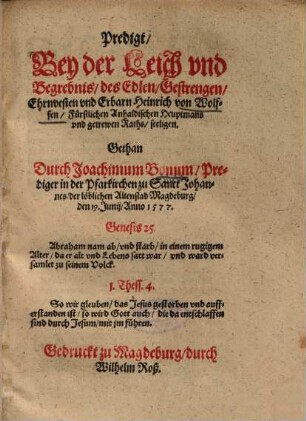 Predigt/
Bey der Leich vnd
Begrebnis/ des Edlen/ Gestrengen/
Ehrnvesten vnd Erbarn Heinrich von Wolf-
fen/ Fürstlichen Anhaldischen Heuptmans
vnd getrewen Raths/ seeligen.
Gethan
Durch Joachimum Bonum/ Pre-
diger in der Pfarkirchen zu Sanct Johan-
nes/ der löblichen Altenstad Magdeburg/
den 19. Junij/ Anno 1577.
Genesis 25.
Abraham nam ab/ vnd starb/ in einem rugigem
Alter/ da er alt vnd Lebens satt war/ vnd ward ver-
samlet zu seinem Volck.
1. Thess. 4.
So wir gleuben/ das Jesus gestorben vnd auff-
erstanden ist/ so wird Gott auch/ die da entschlaffen
sind durch Jesum/ mit jm führen.
Gedruckt zu Magdeburg/ durch
Wilhelm Roß.